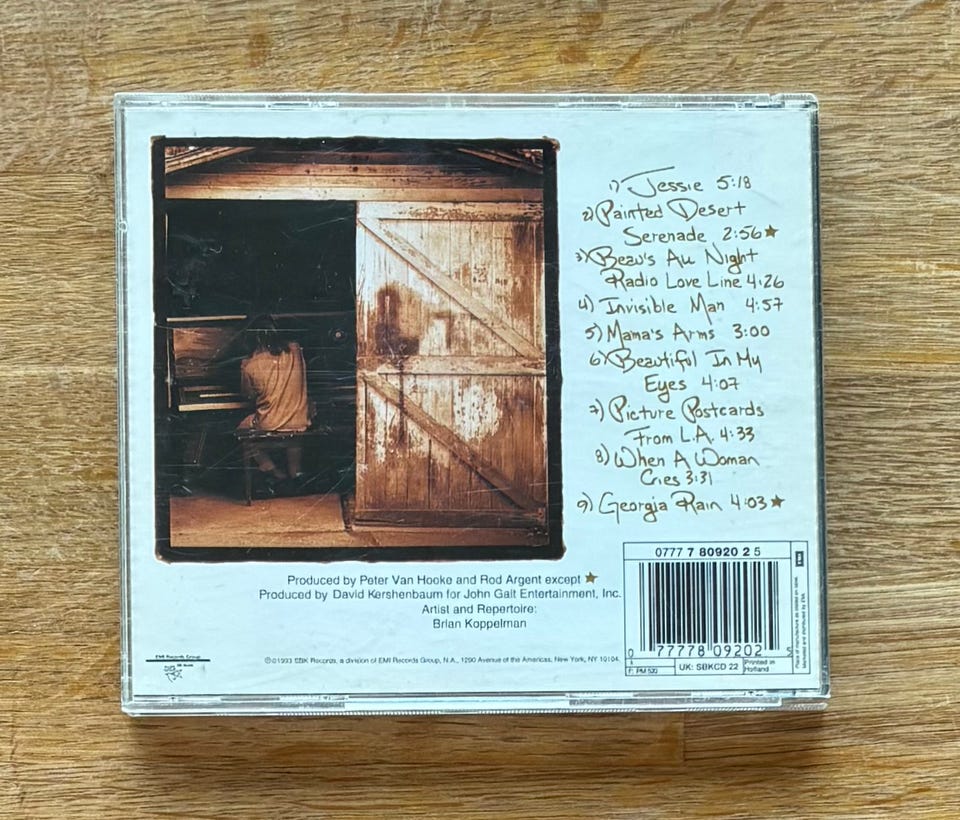 1) Jessie 5:18
2) Painted Desert
Serenade 2:56★
3) Beau's All Night
Radio Love Line 4:26
4) Invisible Man 4:57
5) Mama's Arms 3:00
6) Beautiful In My
Eyes 4:07
7) Picture Postcards
From L.A. 4:33
8) When A Woman
Cries 3:31
9) Georgia Rain 4:03★
Produced by Peter Van Hooke and Rod Argent except ★
Produced by David Kershenbaum for John Galt Entertainment, Inc.
Artist and Repertoire:
Brian Koppelman
EMI Records Group
℗©1993 SBK Records, a division of EMI Records Group, N.A., 1290 Avenue of the Americas, New York, NY 10104.
0777 7 80920 2 5
0 77778 09202 5
F: PM 520
UK: SBKCD 22
Printed in
Holland